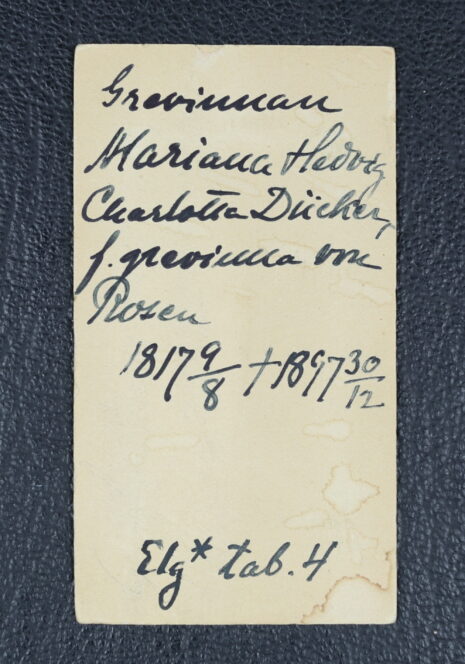 Grevinnan
Mariana Hedvig
Charlotta Dücker,
f. grevinna von
Rosen
1817 9/8 † 1897 30/12
Elg* tab. 4